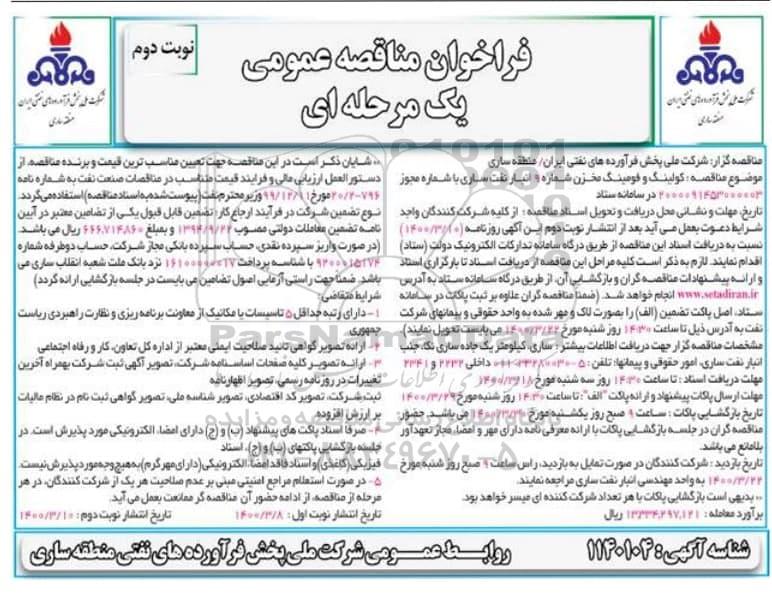 فراخوان مناقصه عمومی
یک مرحله ای
نوبت دوم
شرکت ملی پخش فرآورده‌های نفتی ایران
منطقه ساری
شرکت ملی پخش فرآورده‌های نفتی ایران
منطقه ساری
مناقصه گزار: شرکت ملی پخش فرآورده های نفتی ایران/ منطقه ساری
موضوع مناقصه: کولینگ و فومینگ مخزن شماره ۹ انبار نفت ساری با شماره مجوز
۲۰۰۰۰۹۱۴۵۳۰۰۰۰۰۳ در سامانه ستاد
تاریخ، مهلت و نشانی محل دریافت و تحویل اسناد مناقصه: از کلیه شرکت کنندگان واجد
شرایط دعوت بعمل می آید بعد از انتشار نوبت دوم این آگهی روزنامه (۱۴۰۰/۳/۱۰)
نسبت به دریافت اسناد این مناقصه از طریق درگاه سامانه تدارکات الکترونیک دولت (ستاد)
اقدام نمایند. لازم به ذکر است کلیه مراحل این مناقصه از دریافت اسناد تا بارگزاری اسناد
و ارائه پیشنهادات مناقصه گران و بازگشایی آن، از طریق درگاه سامانه ستاد به آدرس
www.setadiran.ir انجام خواهد شد. (ضمنا مناقصه گران علاوه بر ثبت پاکات در سامانه
ستاد، اصل پاکت تضمین (الف) را بصورت لاک و مهر شده به واحد حقوقی و پیمانهای شرکت
نفت به آدرس ذیل تا ساعت ۱۴:۳۰ روز شنبه مورخ ۱۴۰۰/۳/۲۲ می بایست تحویل نمایند)
مشخصات مناقصه گزار جهت دریافت اطلاعات بیشتر: ساری، کیلومتر یک جاده ساری نکا، جنب
انبار نفت ساری، امور حقوقی و پیمانها؛ تلفن: ۵-۰۱۱-۳۳۲۸۰۰۳۰ داخلی ۲۲۳۲ و ۲۳۴۱
مهلت دریافت اسناد: تا ساعت ۱۴:۳۰ روز سه شنبه مورخ ۱۴۰۰/۳/۱۸
مهلت ارسال پاکات پیشنهاد و ارائه پاکات "الف": تا ساعت ۱۴:۳۰ روز شنبه مورخ ۱۴۰۰/۳/۲۹
تاریخ بازگشایی پاکات: ساعت ۹ صبح روز یکشنبه مورخ ۱۴۰۰/۳/۳۰ می باشد. حضور
مناقصه گران در جلسه بازگشایی پاکات با ارائه معرفی نامه دارای مهر و امضا، مجاز تعهدآور
بلامانع می باشد.
تاریخ بازدید: شرکت کنندگان در صورت تمایل به بازدید، راس ساعت ۹ صبح روز شنبه مورخ
۱۴۰۰/۳/۲۲ به واحد مهندسی انبار نفت ساری مراجعه نمایند.
** بدیهی است بازگشایی پاکات با هر تعداد شرکت کننده ای میسر خواهد بود.
برآورد معامله: ۱۳,۳۳۴,۲۹۷,۱۲۱ ریال
** شایان ذکر است در این مناقصه جهت تعیین مناسب ترین قیمت و برنده مناقصه، از
دستور العمل ارزیابی مالی و فرایند قیمت متناسب در مناقصات صنعت نفت به شماره نامه
۲۰/۲-۷۹۶ مورخ ۹۹/۱۲/۸ وزیر محترم نفت (پیوست شده به اسناد مناقصه) استفاده می گردد.
نوع تضمین شرکت در فرآیند ارجاع کار: تضمین قابل قبول یکی از تضامین معتبر در آیین
نامه تضمین معاملات دولتی مصوب ۱۳۹۴/۹/۲۲ و بمبلغ ۶۶۶,۷۱۴,۸۶۰ ریال می باشد.
(در صورت واریز سپرده نقدی، حساب سپرده بانکی مجاز شرکت، حساب دو طرفه شماره
۹۲۰۰۰۱۵۱۷۴ با شناسه پرداخت ۱۶۱۰۰۰۰۰۰۰۱۷ نزد بانک ملت شعبه انقلاب ساری می
باشد. ضمنا جهت راستی آزمایی اصول تضامین می بایست در جلسه بازگشایی ارائه گردد)
شرایط متقاضی:
۱- دارای رتبه حداقل ۵ تاسیسات یا مکانیک از معاونت برنامه ریزی و نظارت راهبردی ریاست
جمهوری
۲- ارائه تصویر گواهی تایید صلاحیت ایمنی معتبر از اداره کل تعاون، کار و رفاه اجتماعی
۳- ارائه تصویر کلیه صفحات اساسنامه شرکت، تصویر آگهی ثبت شرکت بهمراه آخرین
تغییرات در روزنامه رسمی، تصویر اظهارنامه
ثبت شرکت، تصویر کد اقتصادی، تصویر شناسه ملی، تصویر گواهی ثبت نام در نظام مالیات
بر ارزش افزوده
۴- صرفا اسناد پاکت های پیشنهاد (ب) و (ج) دارای امضا، الکترونیکی مورد پذیرش است. در
جلسه بازگشایی پاکتهای (ب) و (ج)، اسناد
فیزیکی (کاغذی) و اسناد فاقد امضا، الکترونیکی (دارای مهر گرم) به هیچ وجه مورد پذیرش نیست.
۵- در صورت استعلام مراجع امنیتی مبنی بر عدم صلاحیت هر یک از شرکت کنندگان، در هر
مرحله از مناقصه، از ادامه حضور آن مناقصه گر ممانعت بعمل می آید.
تاریخ انتشار نوبت اول: ۱۴۰۰/۳/۸ تاریخ انتشار نوبت دوم: ۱۴۰۰/۳/۱۰
شناسه آگهی: ۱۱۴۰۱۰۴
روابط عمومی شرکت ملی پخش فرآورده های نفتی منطقه ساری